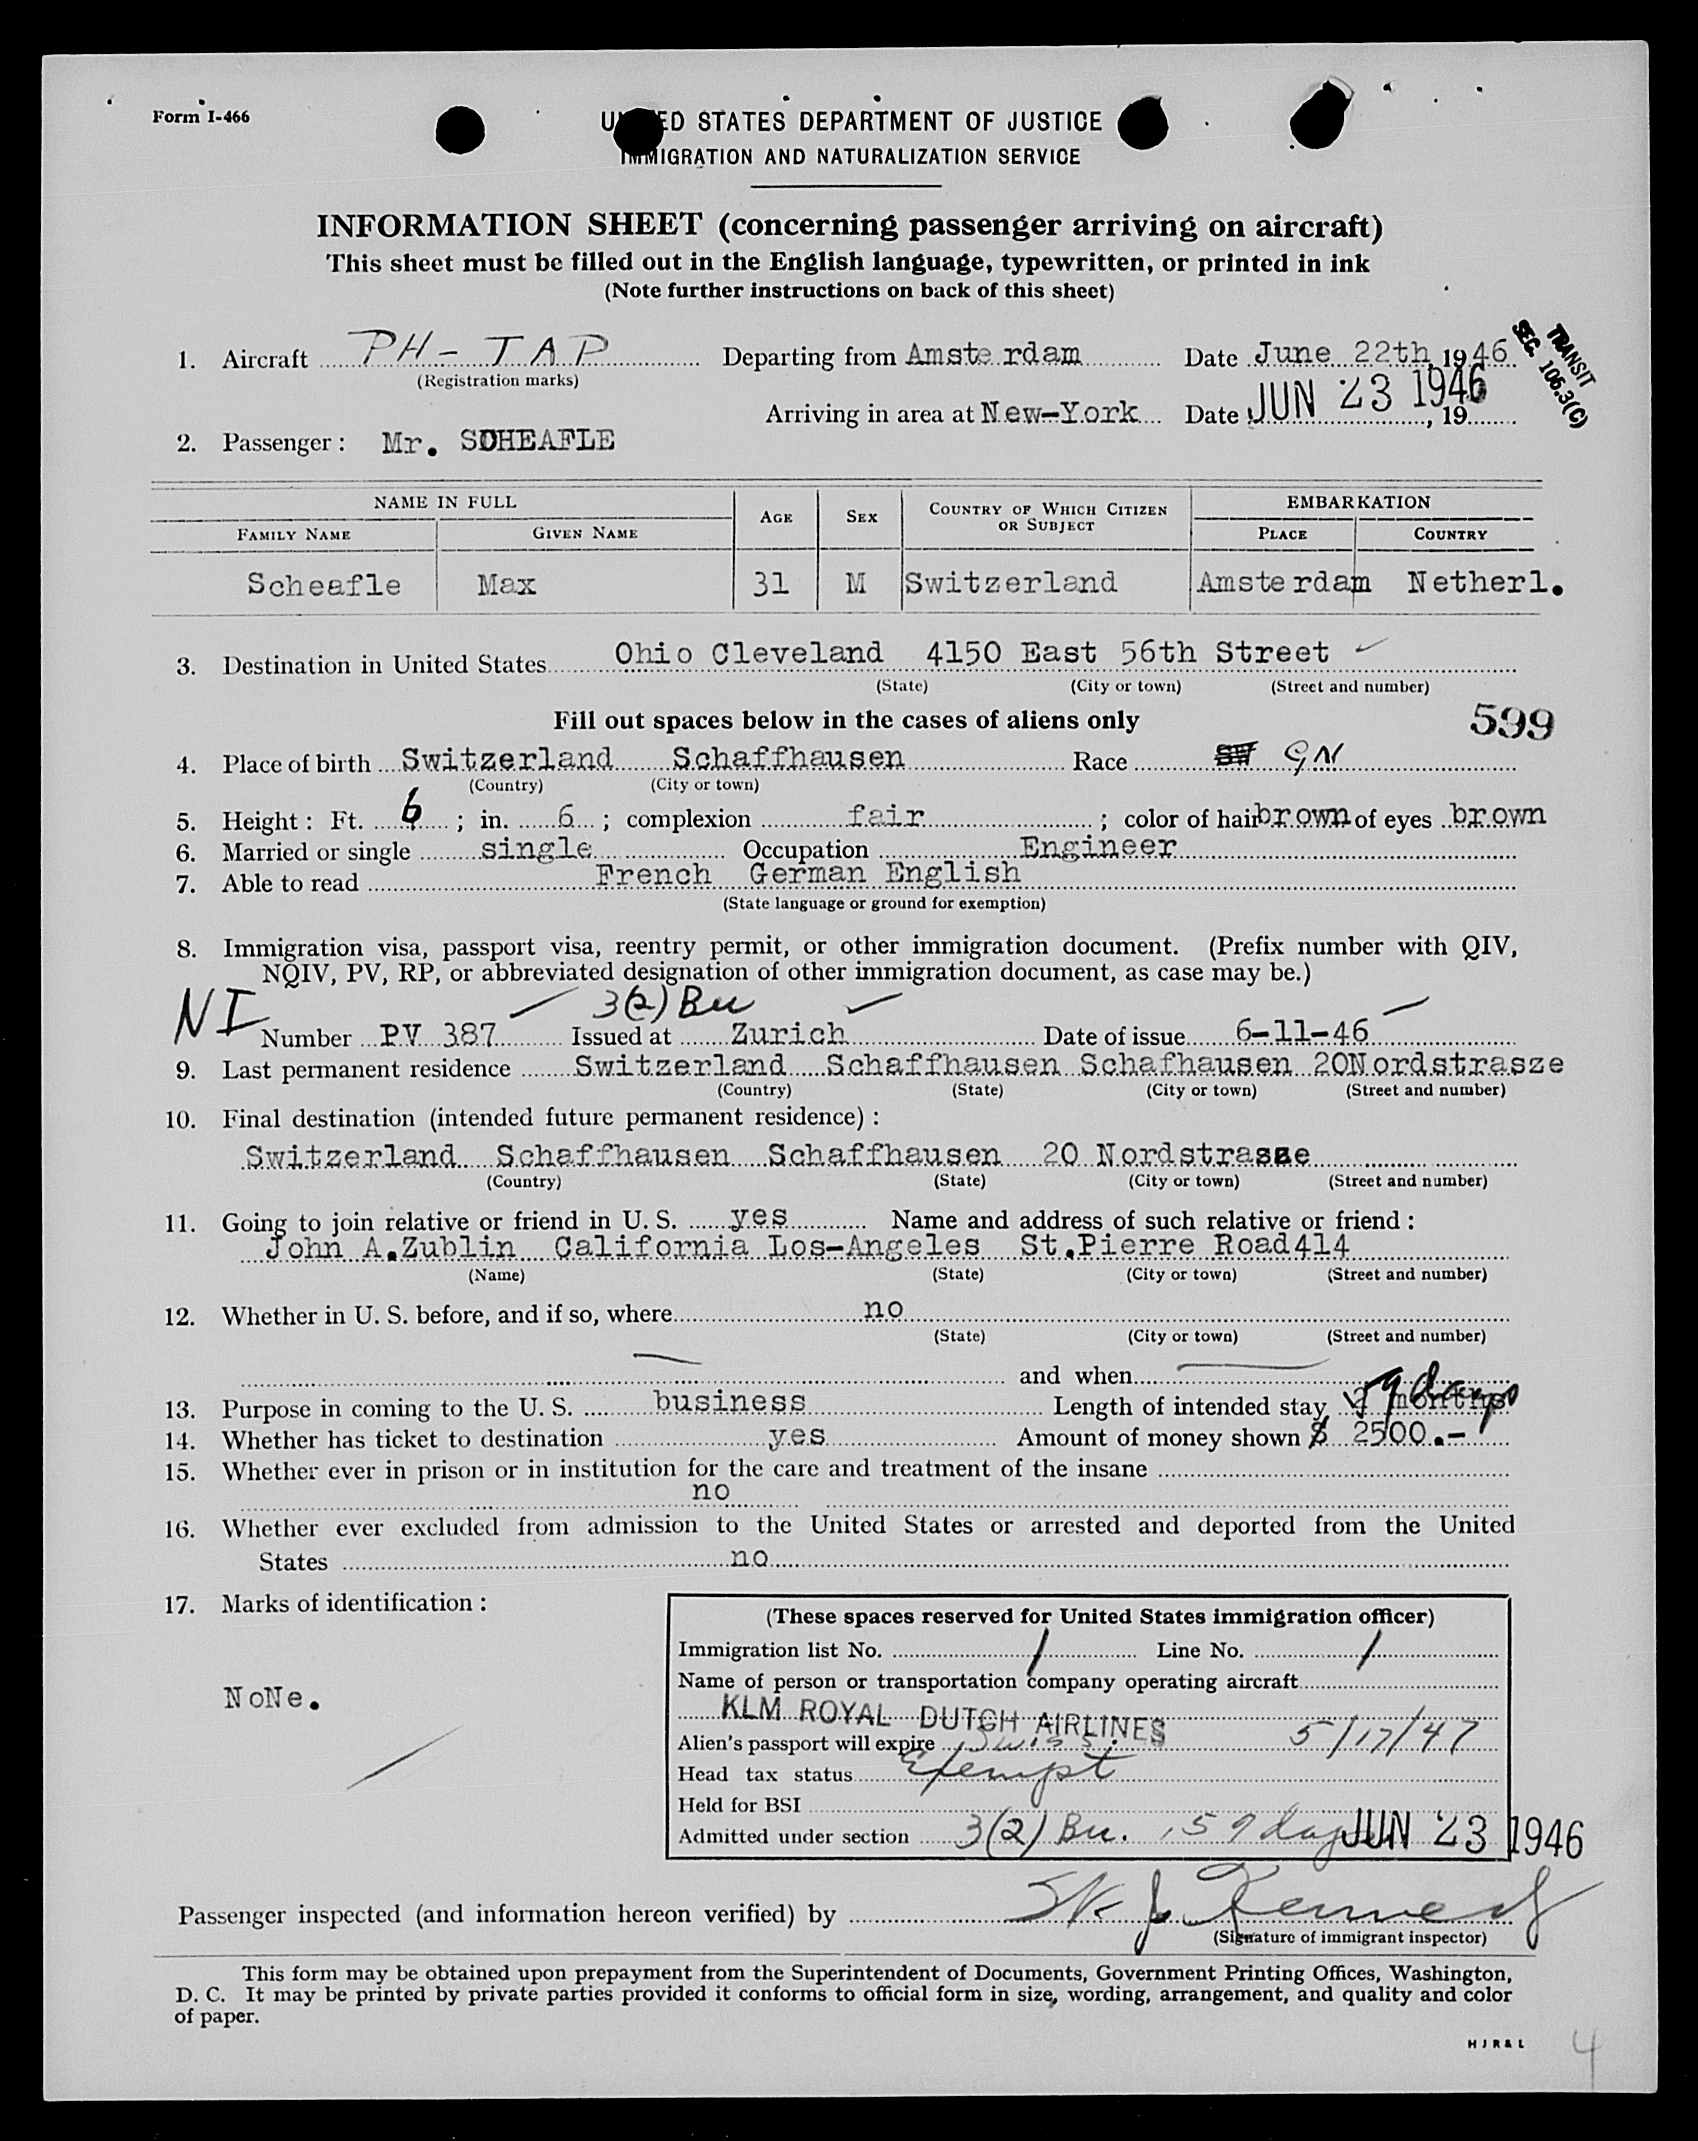 Form I-466
UNITED STATES DEPARTMENT OF JUSTICE
IMMIGRATION AND NATURALIZATION SERVICE
INFORMATION SHEET (concerning passenger arriving on aircraft)
This sheet must be filled out in the English language, typewritten, or printed in ink
(Note further instructions on back of this sheet)
TRANSIT
SEC. 106.3(C)
1. Aircraft PH-TAP Departing from Amsterdam Date June 22th, 1946
(Registration marks)
Arriving in area at New-York Date JUN 23 1946, 19
2. Passenger: Mr. SCHEAFLE
NAME IN FULL AGE SEX COUNTRY OF WHICH CITIZEN OR SUBJECT EMBARKATION
FAMILY NAME GIVEN NAME PLACE COUNTRY
Scheafle Max 31 M Switzerland Amsterdam Netherl.
3. Destination in United States Ohio Cleveland 4150 East 56th Street
(State) (City or town) (Street and number)
Fill out spaces below in the cases of aliens only
599
4. Place of birth Switzerland Schaffhausen Race SW GN
(Country) (City or town)
5. Height: Ft. 6; in. 6; complexion fair; color of hair brown of eyes brown
6. Married or single single Occupation Engineer
7. Able to read French German English
(State language or ground for exemption)
8. Immigration visa, passport visa, reentry permit, or other immigration document. (Prefix number with QIV,
NQIV, PV, RP, or abbreviated designation of other immigration document, as case may be.)
NI 3(2) Bu
Number PV 387 Issued at Zurich Date of issue 6-11-46
9. Last permanent residence Switzerland Schaffhausen Schafhausen 20Nordstrasze
(Country) (State) (City or town) (Street and number)
10. Final destination (intended future permanent residence):
Switzerland Schaffhausen Schaffhausen 20 Nordstrasze
(Country) (State) (City or town) (Street and number)
11. Going to join relative or friend in U. S. yes Name and address of such relative or friend:
John A.Zublin California Los-Angeles St.Pierre Road414
(Name) (State) (City or town) (Street and number)
12. Whether in U. S. before, and if so, where no
(State) (City or town) (Street and number)
and when
13. Purpose in coming to the U. S. business Length of intended stay months days
14. Whether has ticket to destination yes Amount of money shown $ 2500.-
15. Whether ever in prison or in institution for the care and treatment of the insane
no
16. Whether ever excluded from admission to the United States or arrested and deported from the United
States no
17. Marks of identification:
NoNe.
(These spaces reserved for United States immigration officer)
Immigration list No. 1 Line No. 1
Name of person or transportation company operating aircraft
KLM ROYAL DUTCH AIRLINES
Alien's passport will expire Swiss 5/17/47
Head tax status Exempt
Held for BSI
Admitted under section 3(2) Bu. 59 days JUN 23 1946
Passenger inspected (and information hereon verified) by Kennedy
(Signature of immigrant inspector)
This form may be obtained upon prepayment from the Superintendent of Documents, Government Printing Offices, Washington,
D. C. It may be printed by private parties provided it conforms to official form in size, wording, arrangement, and quality and color
of paper.
H J R & L
4